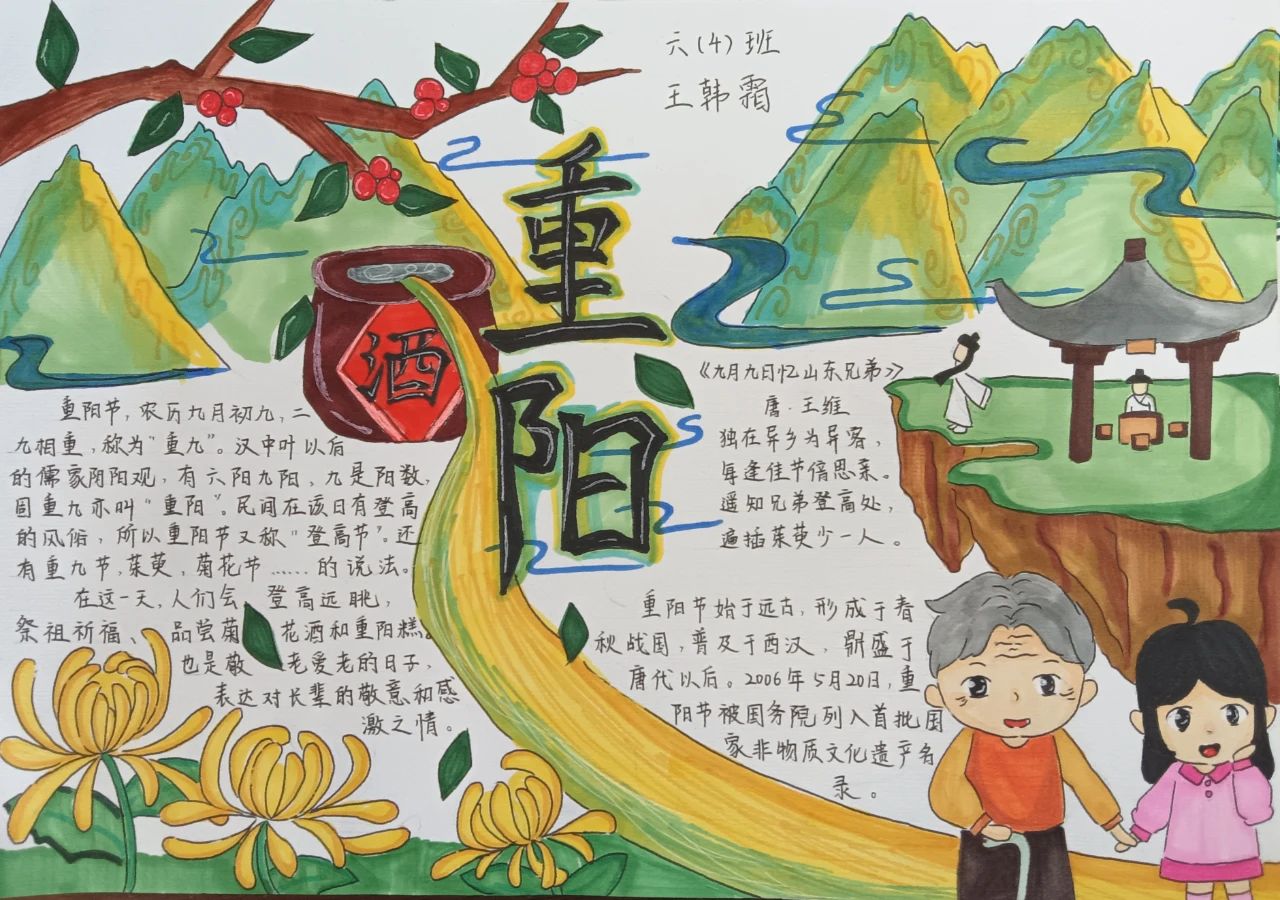 六（4）班
王韩霜
重阳
酒
重阳节，农历九月初九，二
九相重，称为“重九”。汉中叶以后
的儒家阴阳观，有六阴九阳、九是阳数，
固重九亦叫“重阳”。民间在该日有登高
的风俗，所以重阳节又称“登高节”。还
有重九节，茱萸，菊花节……的说法。
在这一天，人们会登高远眺，
祭祖祈福、品尝菊花酒和重阳糕。
也是敬老爱老的日子，
表达对长辈的敬意和感
激之情。
《九月九日忆山东兄弟》
唐·王维
独在异乡为异客，
每逢佳节倍思亲。
遥知兄弟登高处，
遍插茱萸少一人。
重阳节始于远古，形成于春
秋战国，普及于西汉，鼎盛于
唐代以后。2006年5月20日，重
阳节被国务院列入首批国
家非物质文化遗产名
录。